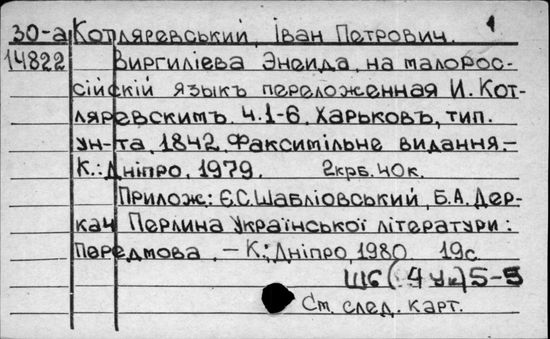 1
30-а Котляревський, Іван Петрович.
14822 Виргиліева Энеида, на малорос-
сійскій языкъ переложенная И. Кот-
ляревскимъ. Ч.1-6, Харьковъ, тип.
ун-та, 1842. Факсимільне видання.-
К.: Дніпро, 1979. 2крб. 40к.
Прилож: Є.С. Шабліовський, Б.А. Дер-
кач Перлина Української літератури:
Передмова. - К.: Дніпро, 1980 19с.
Ш6(4Ук)5-5
См. след. карт.